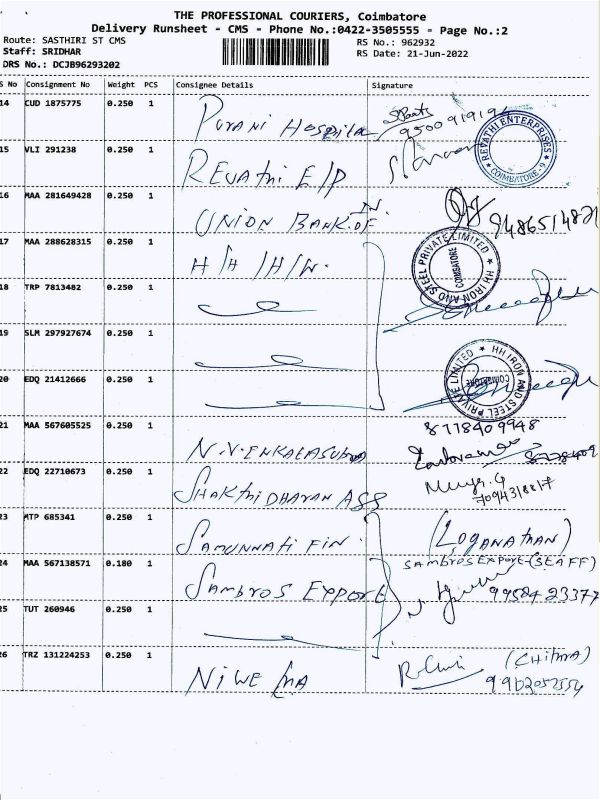 THE PROFESSIONAL COURIERS, Coimbatore
Delivery Runsheet - CMS - Phone No.:0422-3505555 - Page No.:2
Route: SASTHIRI ST CMS
RS No.: 962932
Staff: SRIDHAR
RS Date: 21-Jun-2022
DRS No.: DCJB96293202
S No Consignment No Weight PCS Consignee Details Signature
14 CUD 1875775 0.250 1 Purani Hospital
9500919196
15 VLI 291238 0.250 1 REVAthi E/P
REVATHI ENTERPRISES COIMBATORE - 9
16 MAA 281649428 0.250 1 UNION BANK.OF IN
9486514821
17 MAA 288628315 0.250 1 H/H /H/W.
HH IRON AND STEEL PRIVATE LIMITED COIMBATORE
18 TRP 7813482 0.250 1
19 SLM 297927674 0.250 1
HH IRON AND STEEL PRIVATE LIMITED COIMBATORE
20 EDQ 21412666 0.250 1
21 MAA 567605525 0.250 1 N.VENKATASUbma
8778409948
22 EDQ 22710673 0.250 1 SHAKthi DHARAN ASS
23 MTP 685341 0.250 1 SAMUNNAti FIN.
(LOGANATHAN)
24 MAA 567138571 0.180 1 SAMbros EXPORT
SAMBROS EXPORT-(STAFF)
25 TUT 260946 0.250 1
26 TRZ 131224253 0.250 1 NiWE MA
(CHitHRA)
9902052554